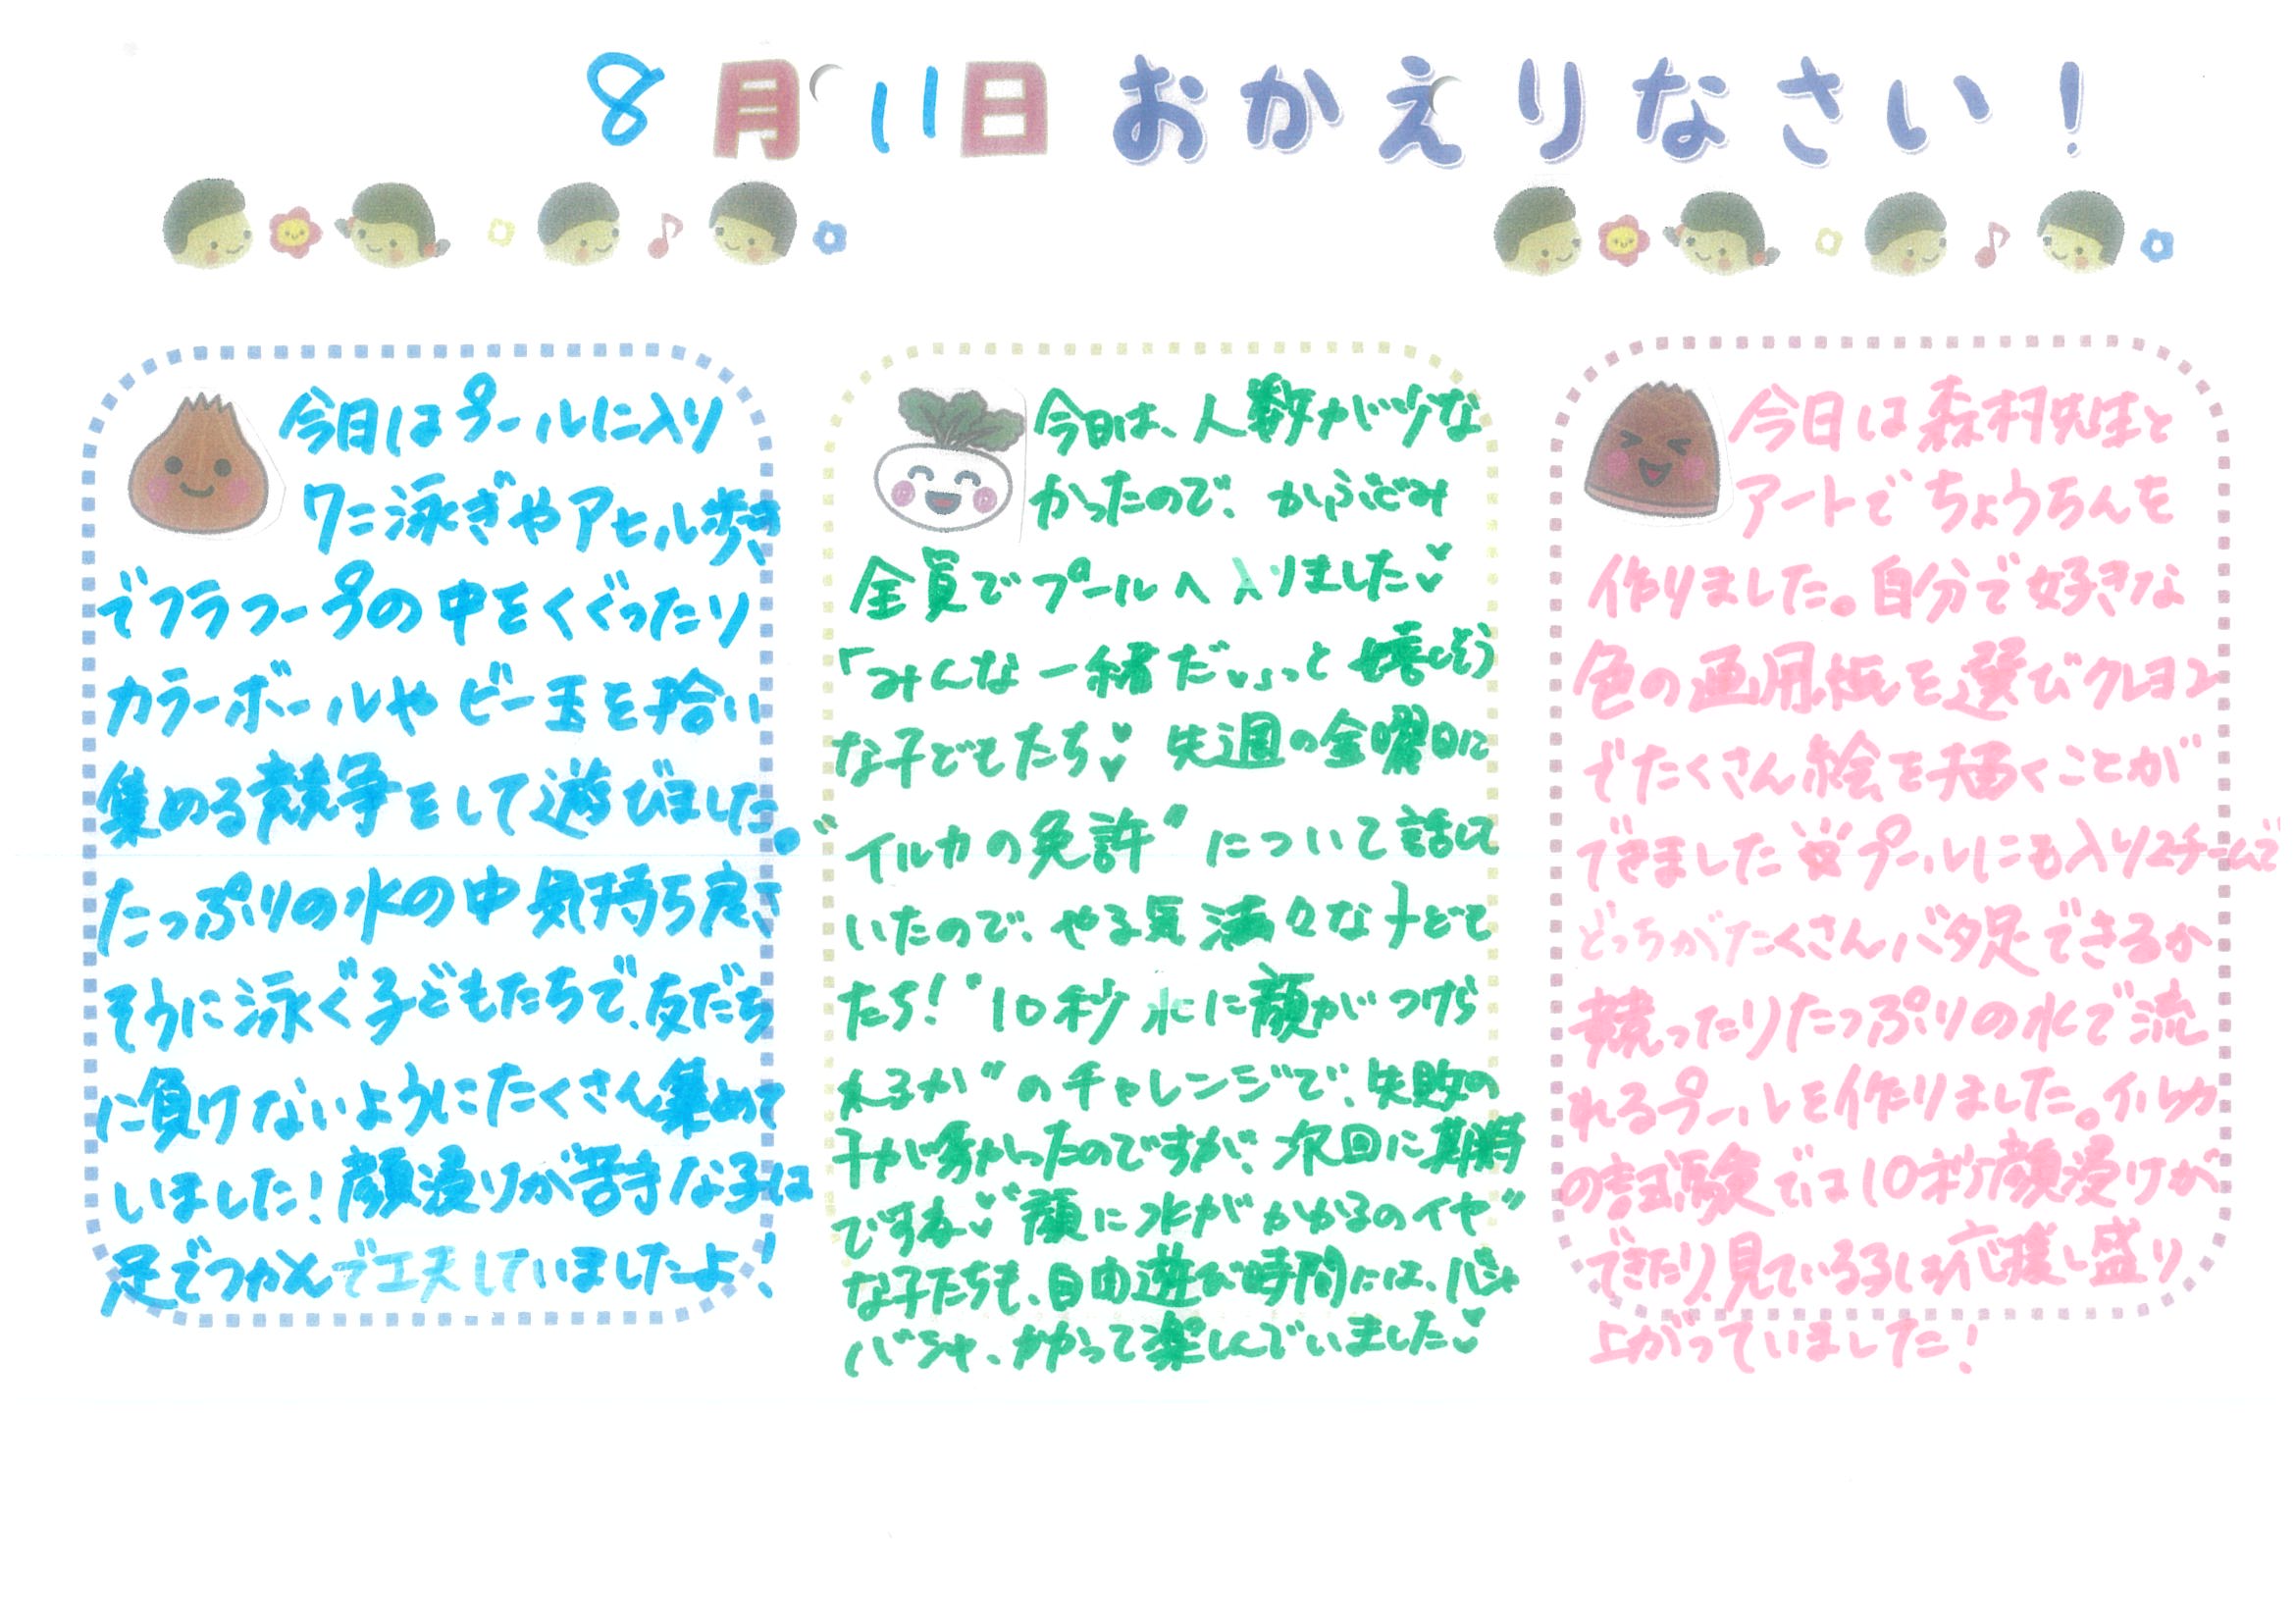 8月11日おかえりなさい！
今日はプールに入り
ワニ泳ぎやアヒル歩き
でフラフープの中をくぐったり
カラーボールやビー玉を拾い
集める競争をして遊びました。
たっぷりの水の中気持ち良さ
そうに泳ぐ子どもたちで、友だち
に負けないようにたくさん集めて
いました！顔浸けが苦手な子は
足でつかんで工夫していましたよ！
今日は、人数が少な
かったので、かぶぐみ
全員でプールへ入りました♥
「みんな一緒だ♥」っと嬉しそう
な子どもたち♥先週の金曜日に
“イルカの免許”について話して
いたので、やる気満々な子ども
たち！“10秒水に顔がつけら
れるか”のチャレンジで、失敗の
子が多かったのですが、次回に期待
ですね♥“顔に水がかかるのイヤ”
な子たちも、自由遊び時間には、バシャ
バシャ、かかって楽しんでいました♥
今日は森村先生と
アートでちょうちんを
作りました。自分で好きな
色の画用紙を選びクレヨン
でたくさん絵を描くことが
できました プールにも入り2チームで
どっちがたくさんバタ足できるか
競ったりたっぷりの水で流
れるプールを作りました。イルカ
の試験では10秒顔浸けが
できたり、見ている子は応援し盛り
上がっていました！